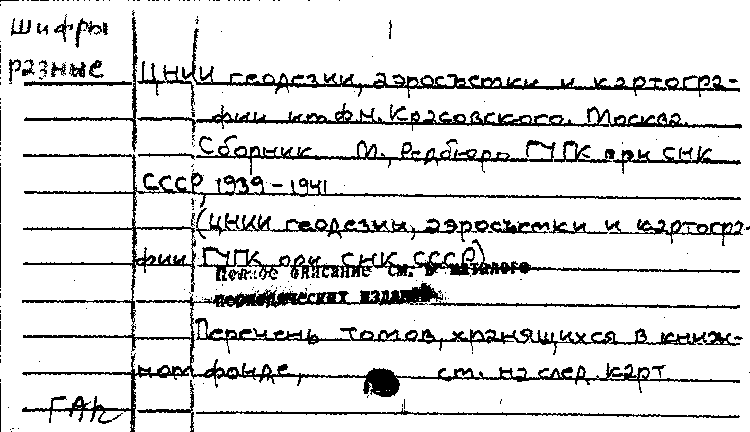 Шифры
разные
ЦНИИ геодезии, аэросъемки и картогра-
фии им. Ф.Н. Красовского. Москва.
Сборник. М., Редбюро ГУГК при СНК
СССР, 1939-1941.
(ЦНИИ геодезии, аэросъемки и картогра-
фии ГУГК при СНК СССР)
Полное описание см. в каталоге
периодических изданий
Перечень томов, хранящихся в книж-
ном фонде, см. на след. карт.
ГАК